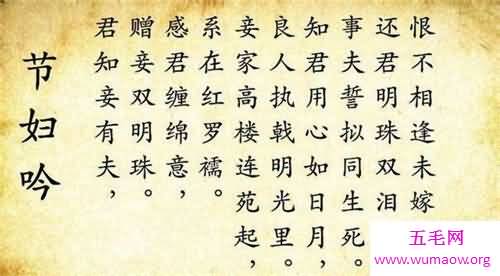 节妇吟
君知妾有夫，
赠妾双明珠。
感君缠绵意，
系在红罗襦。
妾家高楼连苑起，
良人执戟明光里。
知君用心如日月，
事夫誓拟同生死。
还君明珠双泪
恨不相逢未嫁
五毛网
www.wumaow.org